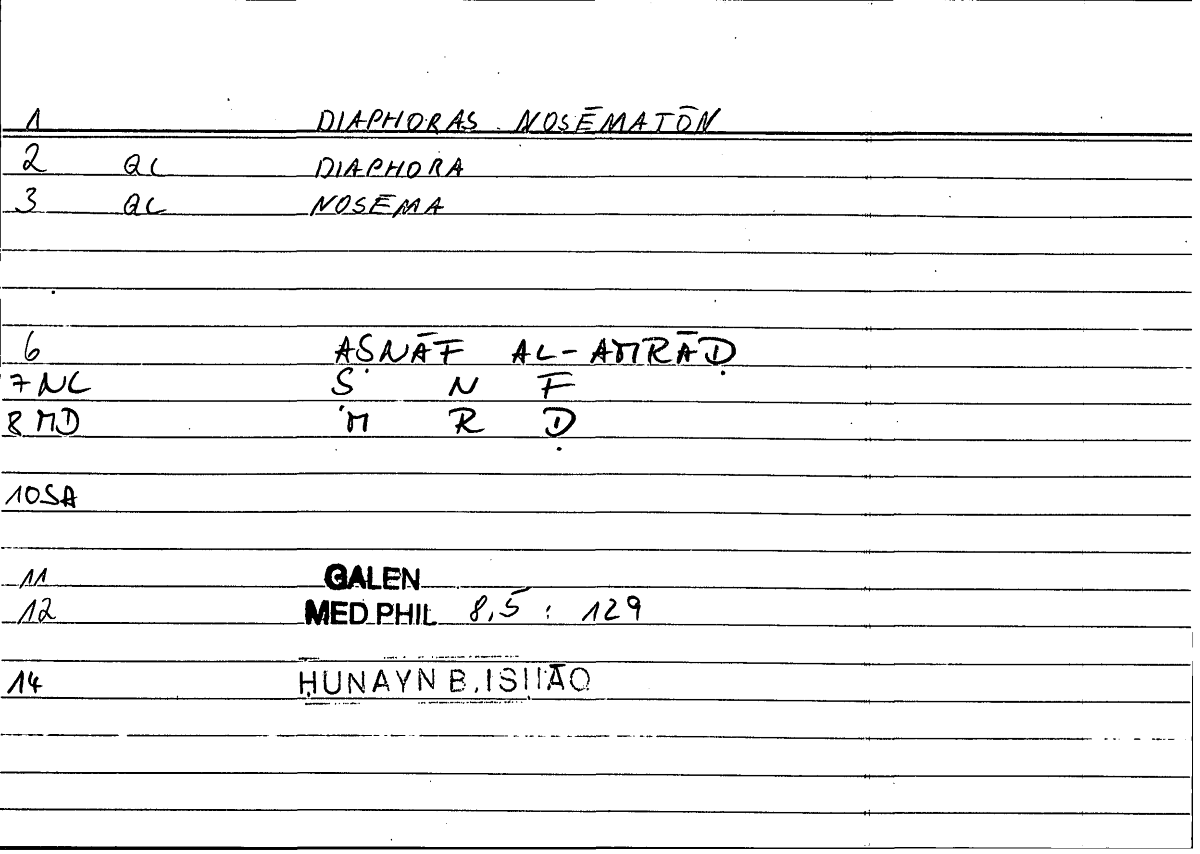 1 DIAPHORAS NOSĒMATŌN
2 QC DIAPHORA
3 QC NOSĒMA
6 AṢNĀF AL-AMRĀḌ
7 NC Ṣ N F
8 MD M R Ḍ
10 SA
11 GALEN
12 MED PHIL 8,5 : 129
14 ḤUNAYN B. ISḤĀQ